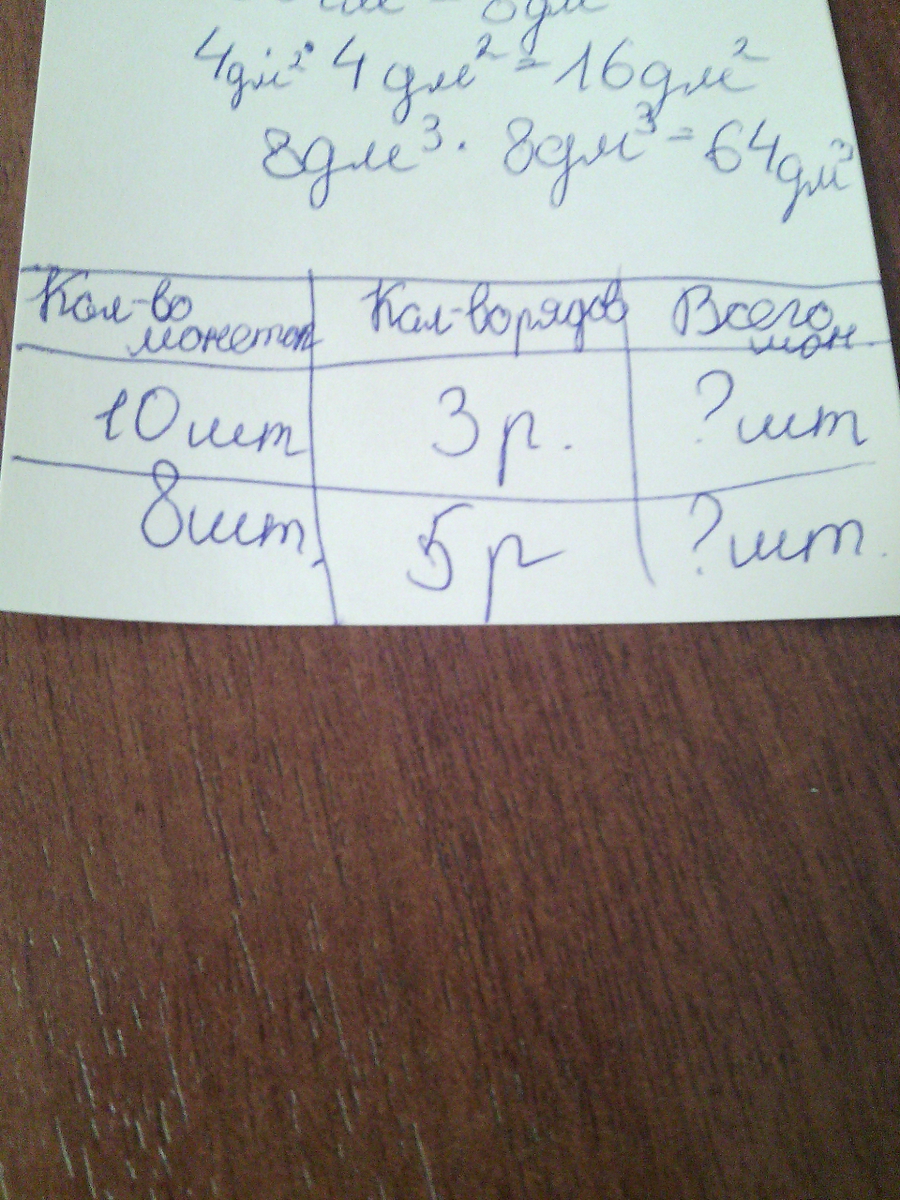 8дм
4дм² · 4дм² = 16дм²
8дм³ · 8дм³ = 64дм³
Кол-во монеток Кол-во рядов Всего мон.
10 шт 3 р. ? шт
8 шт. 5 р ? шт.